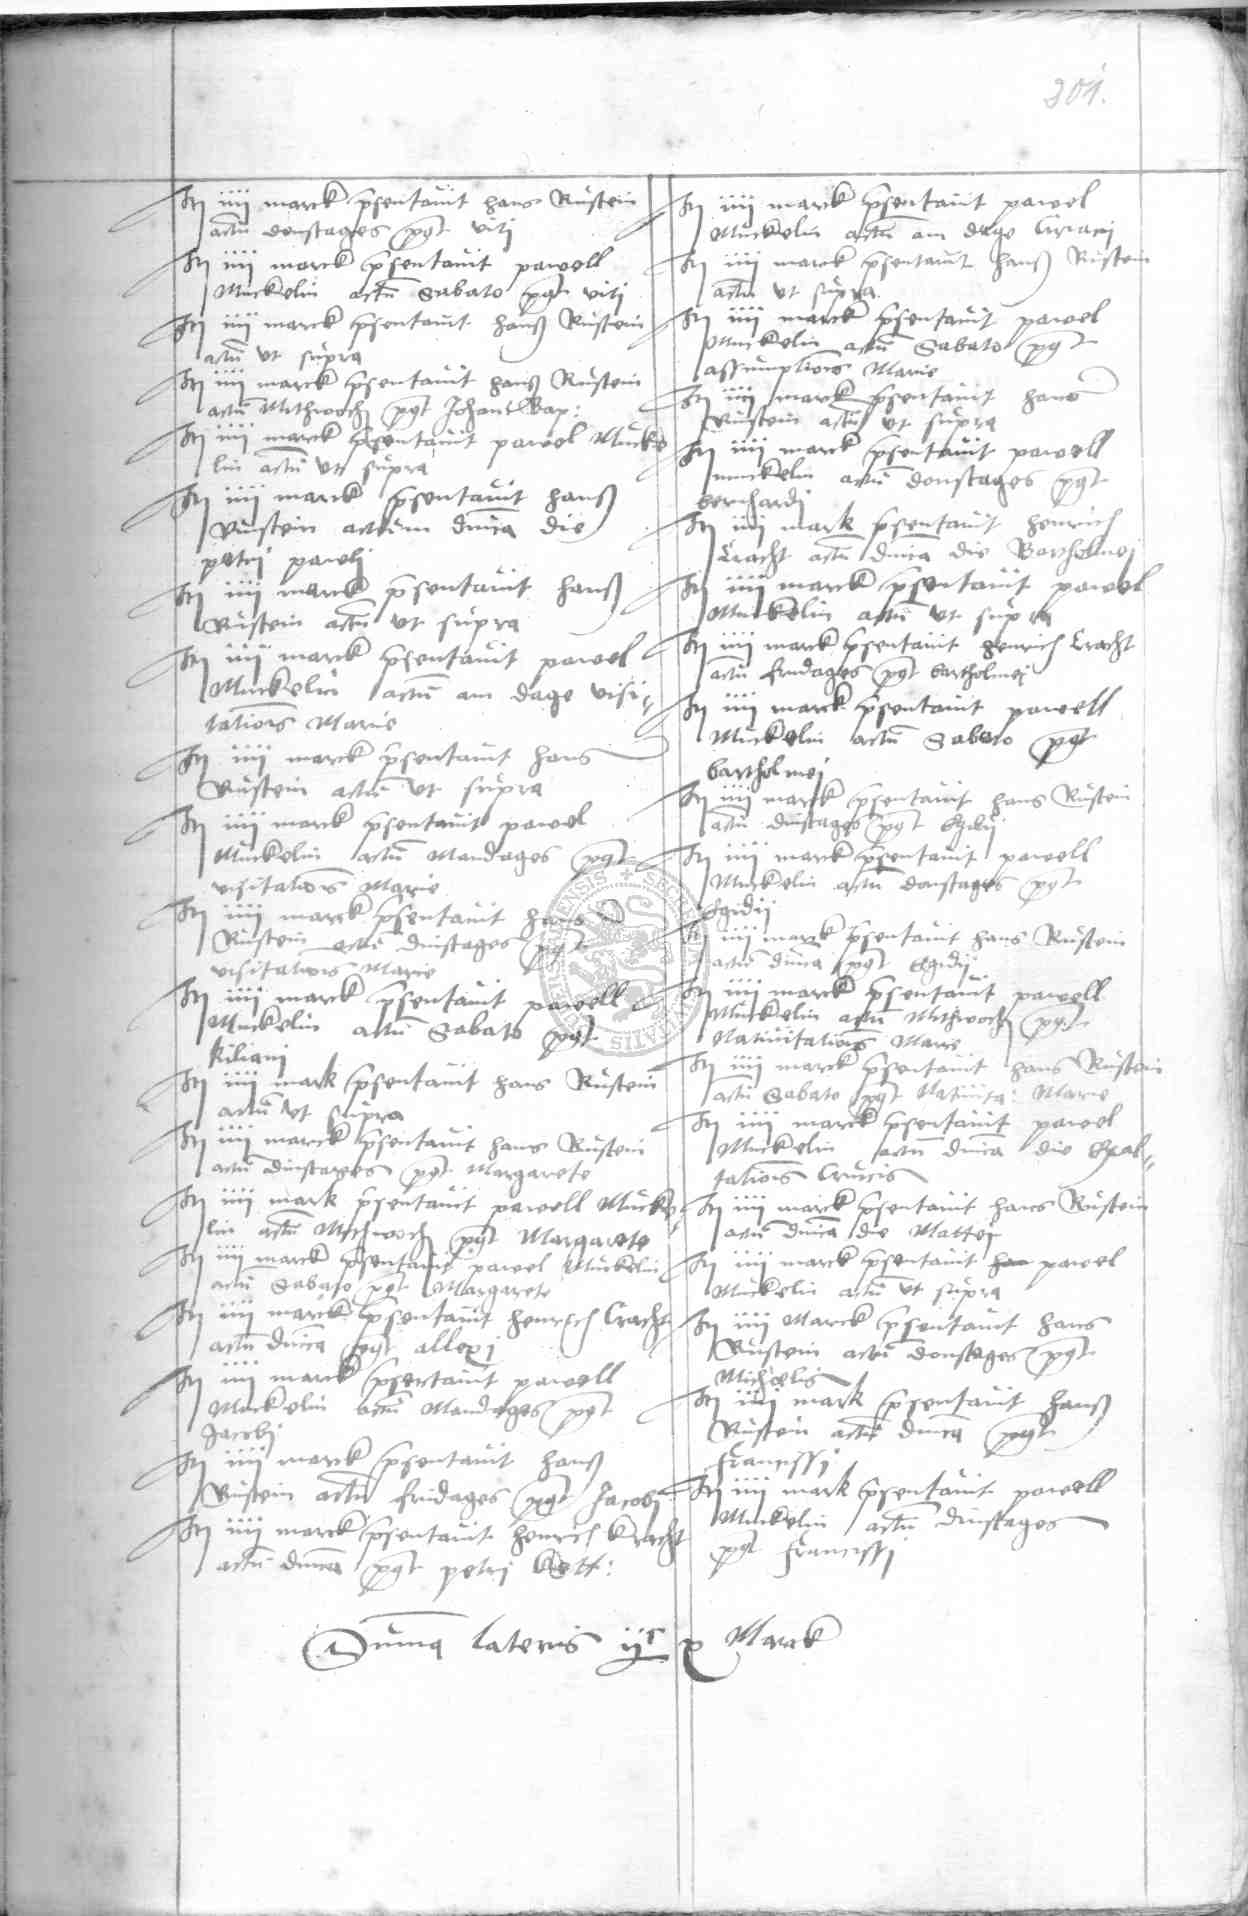 204.
It iiij marck psentauit hans Rustein
actu donstages pqt viti
It iiij marck psentauit pawell
Muckelin actu Sabato pqt viti
It iiij marck psentauit hanß Rustein
actu ut supra
It iiij marck psentauit hanß Rustein
actu Mithwoch pqt Johanis Bap:
It iiij marck psentauit pawel Mucke
lin actu ut supra
It iiij marck psentauit hanß
Rustein actum dnica die
petri pawli
It iiij marck psentauit hanß
Rustein actu ut supra
It iiij marck psentauit pawel
Muckelin actu am dage visi-
tationis Marie
It iiij marck psentauit hans
Rustein actu ut supra
It iiij marck psentauit pawel
Muckelin actu Mandages pqt
visitationis Marie
It iiij marck psentauit hans
Rustein actu dinstages pqt
visitationis Marie
It iiij marck psentauit pawell
Muckelin actu Sabato pqt
kiliani
It iiij mark psentauit hans Rustein
actu ut supra
It iiij marck psentauit hans Rustein
actu dinstages pqt Margarete
It iiij mark psentauit pawell Mucke-
lin actu Mithwoch pqt Margarete
It iiij marck psentauit pawel Muckelin
actu Sabato pqt Margarete
It iiij marck psentauit henrich Cracht
actu dnica pqt allexj
It iiij marck psentauit pawell
Muckelin actu Mandages pqt
Jacobj
It iiij marck psentauit hanß
Rustein actu fridages pqt Jacobj
It iiij marck psentauit henrich kracht
actu dnica pqt petrj kett:
It iiij marck psentauit pawel
Muckelin actu am dage Ciriaci
It iiij marck psentauit hanß Rustein
actu ut supra
It iiij marck psentauit pawel
Muckelin actu Sabato pqt
assumptionis Marie
It iiij marck psentauit hans
Rustein actu ut supra
It iiij marck psentauit pawell
muckelin actu donstages pqt
bernhardj
It iiij mark psentauit henrich
Cracht actu dnica die Bartholmej
It iiij marck psentauit pawel
Muckelin actu ut supra
It iiij marck psentauit henrich Cracht
actu fridages pqt bartholmej
It iiij marck psentauit pawell
Muckelin actu Sabato pqt
bartholmej
It iiij marck psentauit hans Rustein
actu dinstages pqt Egidij
It iiij marck psentauit pawell
Muckelin actu donstages pqt
Egidij
It iiij marck psentauit hans Rustein
actu dnica pqt Egidij
It iiij marck psentauit pawell
Muckelin actu Mithwoch pqt
Natiuitationis Marie
It iiij marck psentauit hans Rustein
actu Sabato pqt Natiuita: Marie
It iiij marck psentauit pawel
Muckelin actu dnica die Exal-
tationis Crucis
It iiij marck psentauit hans Rustein
actu dnica die Mattej
It iiij marck psentauit han pawel
Muckelin actu ut supra
It iiij Marck psentauit hans
Rustein actu donstages pqt
Michelis
It iiij mark psentauit hanß
Rustein actu dnica pqt
francissi
It iiij mark psentauit pawell
Muckelin actu dinstages
pqt francissi
Suma lateris ijc x Marck